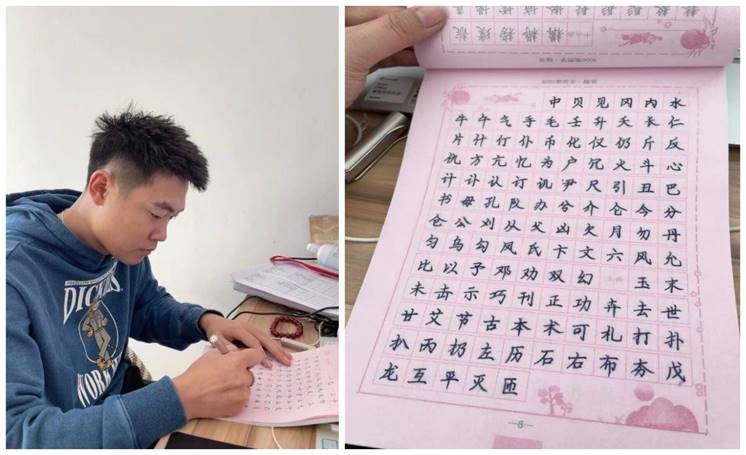 DICKIES
中贝见冈内水
牛午气手毛壬升夭长仁
片什仃仆币化仅仍斤反
方亢忆为户冗火斗心
计讣认订讥尹尺引丑巴
书毋孔队办兮介仑今分
仓公刈从父凶欠月勿丹
匀乌勾凤氏卞文六风允
比以予邓劝双幻 玉末
未击示巧刊正功弃去世
甘艾节古本术可札打扑
扒丙扔左历石右布夯戊
龙互平灭匝
—6—